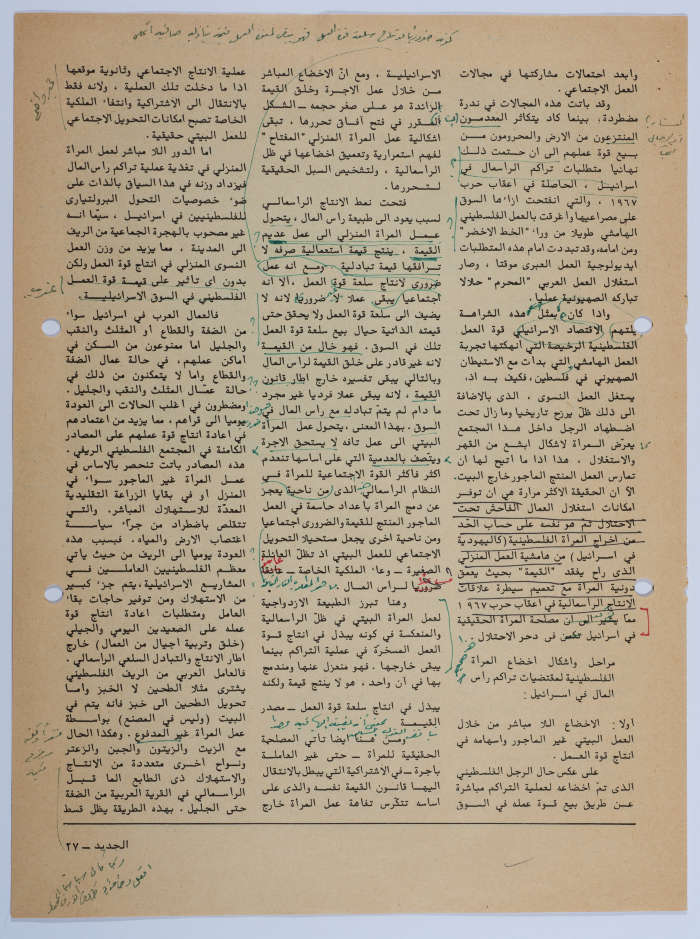 وابعد احتمالات مشاركتها في مجالات
العمل الاجتماعي .
وقد باتت هذه المجالات في ندرة
مضطردة، بينما كاد يتكاثر المعدمون
المنتزعون من الارض والمحرومون مــن
بيع قوة عملهم الى ان حتمت ذلــك
نهائيا متطلبات تراكم الراسمال في
اسرائيـل ، الحاصلة في اعقاب حرب
١٩٦٧ ، والتي انفتحت ازاءها السوق
على مصراعيها وأغرقت بالعمل الفلسطيني
الهامشي طويلا من وراء "الخط الاخضر"
ومن امامه، وقد تبددت امام هذه المتطلبات
ايديولوجية العمل العبرى موقتا ، وصار
استغلال العمل العربي "المحرم" حلالا
تباركه الصهيونية عمليا .
واذا كان يمثل هذه الشراهــة
يلتهم الاقتصاد الاسرائيلي قوة العمل
الفلسطينية الرخيصة التي أنهكتها تجربة
العمل الهامشي التي بدأت مع الاستيطان
الصهيوني في فلسطين ، فكيف به اذ،
يستغل العمل النسوى ، الذى بالاضافة
الى ذلك ظلّ يرزح تاريخيا وما زال تحت
اضطهاد الرجل داخل هـذا المجتمع
يعرّض المرأة لاشكال ابشـع من القهر
والاستغلال ، هذا اذا ما أتيح لها ان
تمارس العمل المنتج الماجور خارج البيت.
الاّ ان الحقيقة الاكثر مرارة هي ان توفـر
امكانات استغلال العمال الفاحش تحت
الاحتلال تمّ هو نفسه على حساب الحدّ
من اخراج المرأة الفلسطينية (كاليهودية
في اسرائيل) من هامشية العمل المنزلي
الذى راح يفقد "القيمة" بحيث يعمق
دونية المرأة مع تعميم سيطرة علاقات
الانتاج الراسمالية في اعقاب حرب ١٩٦٧
ممّا الى ان مصلحة المرأة الحقيقية
في اسرائيل تكمن في دحر الاحتلال .
مراحل واشكال اخضاع المرأة
الفلسطينية لمقتضيات تراكم رأس
المال في اسرائيل :
أولا : الاخضاع اللا مباشر من خلال
العمل البيتي غير الماجور واسهامه في
انتاج قوة العمـل .
على عكس حال الرجل الفلسطيني
الذى تمّ اخضاعه لعملية التراكم مباشرة
عـن طريق بيع قـوة عمله في السـوق
الاسرائيليـة ، ومع انّ الاخضاع المباشر
من خلال عمل الاجـرة وخلق القيمة
الزائدة هو علـى صغر حجمه – الشكل
المقرر في فتح آفـاق تحررها ، تبقى
اشكالية عمل المرأة المنزلي "المفتاح"
لفهم استمرارية وتعميق اخضاعها في ظل
الراسمالية ، ولتشخيص السبل الحقيقية
لتـحـررهـا .
فتحت نمط الانتاج الراسمالـي
لسبب يعود الى طبيعة راس المال، يتحول
عمـل المرأة المنزلي الى عمل عديـم
القيمة ، ينتج قيمة استعمالية صرفه لا
تـرافقها قيمة تبادلية . ومع انه عمل
ضرورى لانتاج سلعة قوة العمل ، الا انه
اجتماعيا يبقى عملا لا ضروريا لانه لا
يضيف الى سلعة قوة العمل ولا يحقق حتى
قيمته الذاتية حيال بيع سلعة قوة العمل
تلك في السوق . فهو خال من القيمـة
لانه غير قادر على خلق القيمة لراس المال
وبالتالي يبقى تفسيره خارج اطار قانون
القيمة ، لانه يبقى عملا فرديا غير مجرد
ما دام لم يتمّ تبادله مع راس المال في
السوق . بهذا المعنى ، يتحول عمل المرأة
البيتي الى عمل تافه لا يستحق الاجرة
ويتصف بالعدمية التي على اساسها تنعدم
اكثر فأكثر القوة الاجتماعية للمرأة فـي
النظام الراسمالي الذى من ناحية يعجز
عن دمج المرأة بأعداد حاسمة في العمل
الماجور المنتج للقيمة والضرورى اجتماعيا
ومن ناحية اخرى يجعل مستحيلا التحويل
الاجتماعي للعمل البيتي اذ تظلّ العائلة
الصغيرة – وعاء الملكية الخاصة –
ضروريا لـراس المـال .
وهنا تبرز الطبيعة الازدواجية
لعمل المرأة البيتي في ظلّ الراسمالية
والمنعكسة في كونه يبذل في انتاج قـوة
العمل المسخرّة في عملية التراكم بينما
يبقى خارجها . فهو منعزل عنها ومندمج
بها في آن واحد ، هو لا ينتج قيمة ولكنه
يبذل في انتاج سلعة قوة العمل – مصدر
القيمـة .
ومـن هنا أيضا تأتي المصلحة
الحقيقية للمرأة – حتى غير العاملـة
بأجرة – في الاشتراكية التي يبطل بالانتقال
اليهـا قانـون القيمة نفسه والذى على
اساسه تتكرّس تفاهة عمل المرأة خارج
عملية الانتاج الاجتماعي وثانوية موقعها
اذا ما دخلت تلك العملية ، ولانه فقط
بالانتقال الى الاشتراكية وانتفاء الملكية
الخاصة تصبح امكانات التحويل الاجتماعي
للعمل البيتي حقيقية .
اما الدور اللا مباشر لعمل المرأة
المنزلي في تغذية عملية تراكم راس المال
فيزداد وزنه في هذا السياق بالذات على
ضوء خصوصيات التحول البروليتارى
للفلسطينيين في اسرائيل ، سيّما انـه
غير مصحوب بالهجرة الجماعية من الريف
الى المدينة ، مما يزيد من وزن العمل
النسوى المنزلي في انتاج قوة العمل ولكن
بدون اى تأثير على قيمـة قوة العمـل
الفلسطيني في السوق الاسرائيليـــة .
فالعمال العرب في اسرائيل سواء
من الضفة والقطاع او المثلث والنقب
والجليل اما ممنوعون من السكن في
اماكن عملهم، في حالة عمال الضفة
والقطاع واما لا يتمكنون من ذلك في
حالة عمـّال المثلث والنقب والجليل .
ومضطرون في اغلب الحالات الى العودة
يوميا الى قراهم ، مما يزيد من اعتمادهم
في اعادة انتاج قوة عملهم على المصادر
الكامنة في المجتمع الفلسطيني الريفي .
هذه المصادر باتت تنحصر بالاساس في
عمـل المـرأة غير الماجور سـواء في
المنزل او في بقايا الزراعة التقليدية
المعدّة للاستهلاك المباشر. والتـي
تتقلص باضطراد من جراء سياســة
اغتصاب الارض والمياه. فبسبب هذه
العودة يوميا الى الريف من حيث يأتي
معظـم الفلسطينيين العاملــين فــي
المشاريع الاسرائيلية ، يتم جزء كبيـر
من الاستهلاك ومن توفير حاجات بقاء
العامل ومتطلبات اعادة انتاج قوة
عمله على الصعيدين اليومي والجيلي
(خلق وتربية اجيال من العمال) خارج
اطار الانتاج والتبادل السلعي الراسمالي .
فالعامل العربي من الريف الفلسطيني
يشترى مثلا الطحين لا الخبز وأما
تحويل الطحين الى خبز فانه يتم في
البيت (وليس في المصنع) بواسطـة
عمل المرأة غير المدفوع . وهكذا الحال
مع الزيت والزيتون والجبن والزعتر
ونـواح اخـرى متعددة من الانتـاج
والاستهلاك ذى الطابع الما قبـل
الراسمالي في القرية العربية من الضفة
حتى الجليل . بهذه الطريقة يظل قسط
الجديد – ٢٧